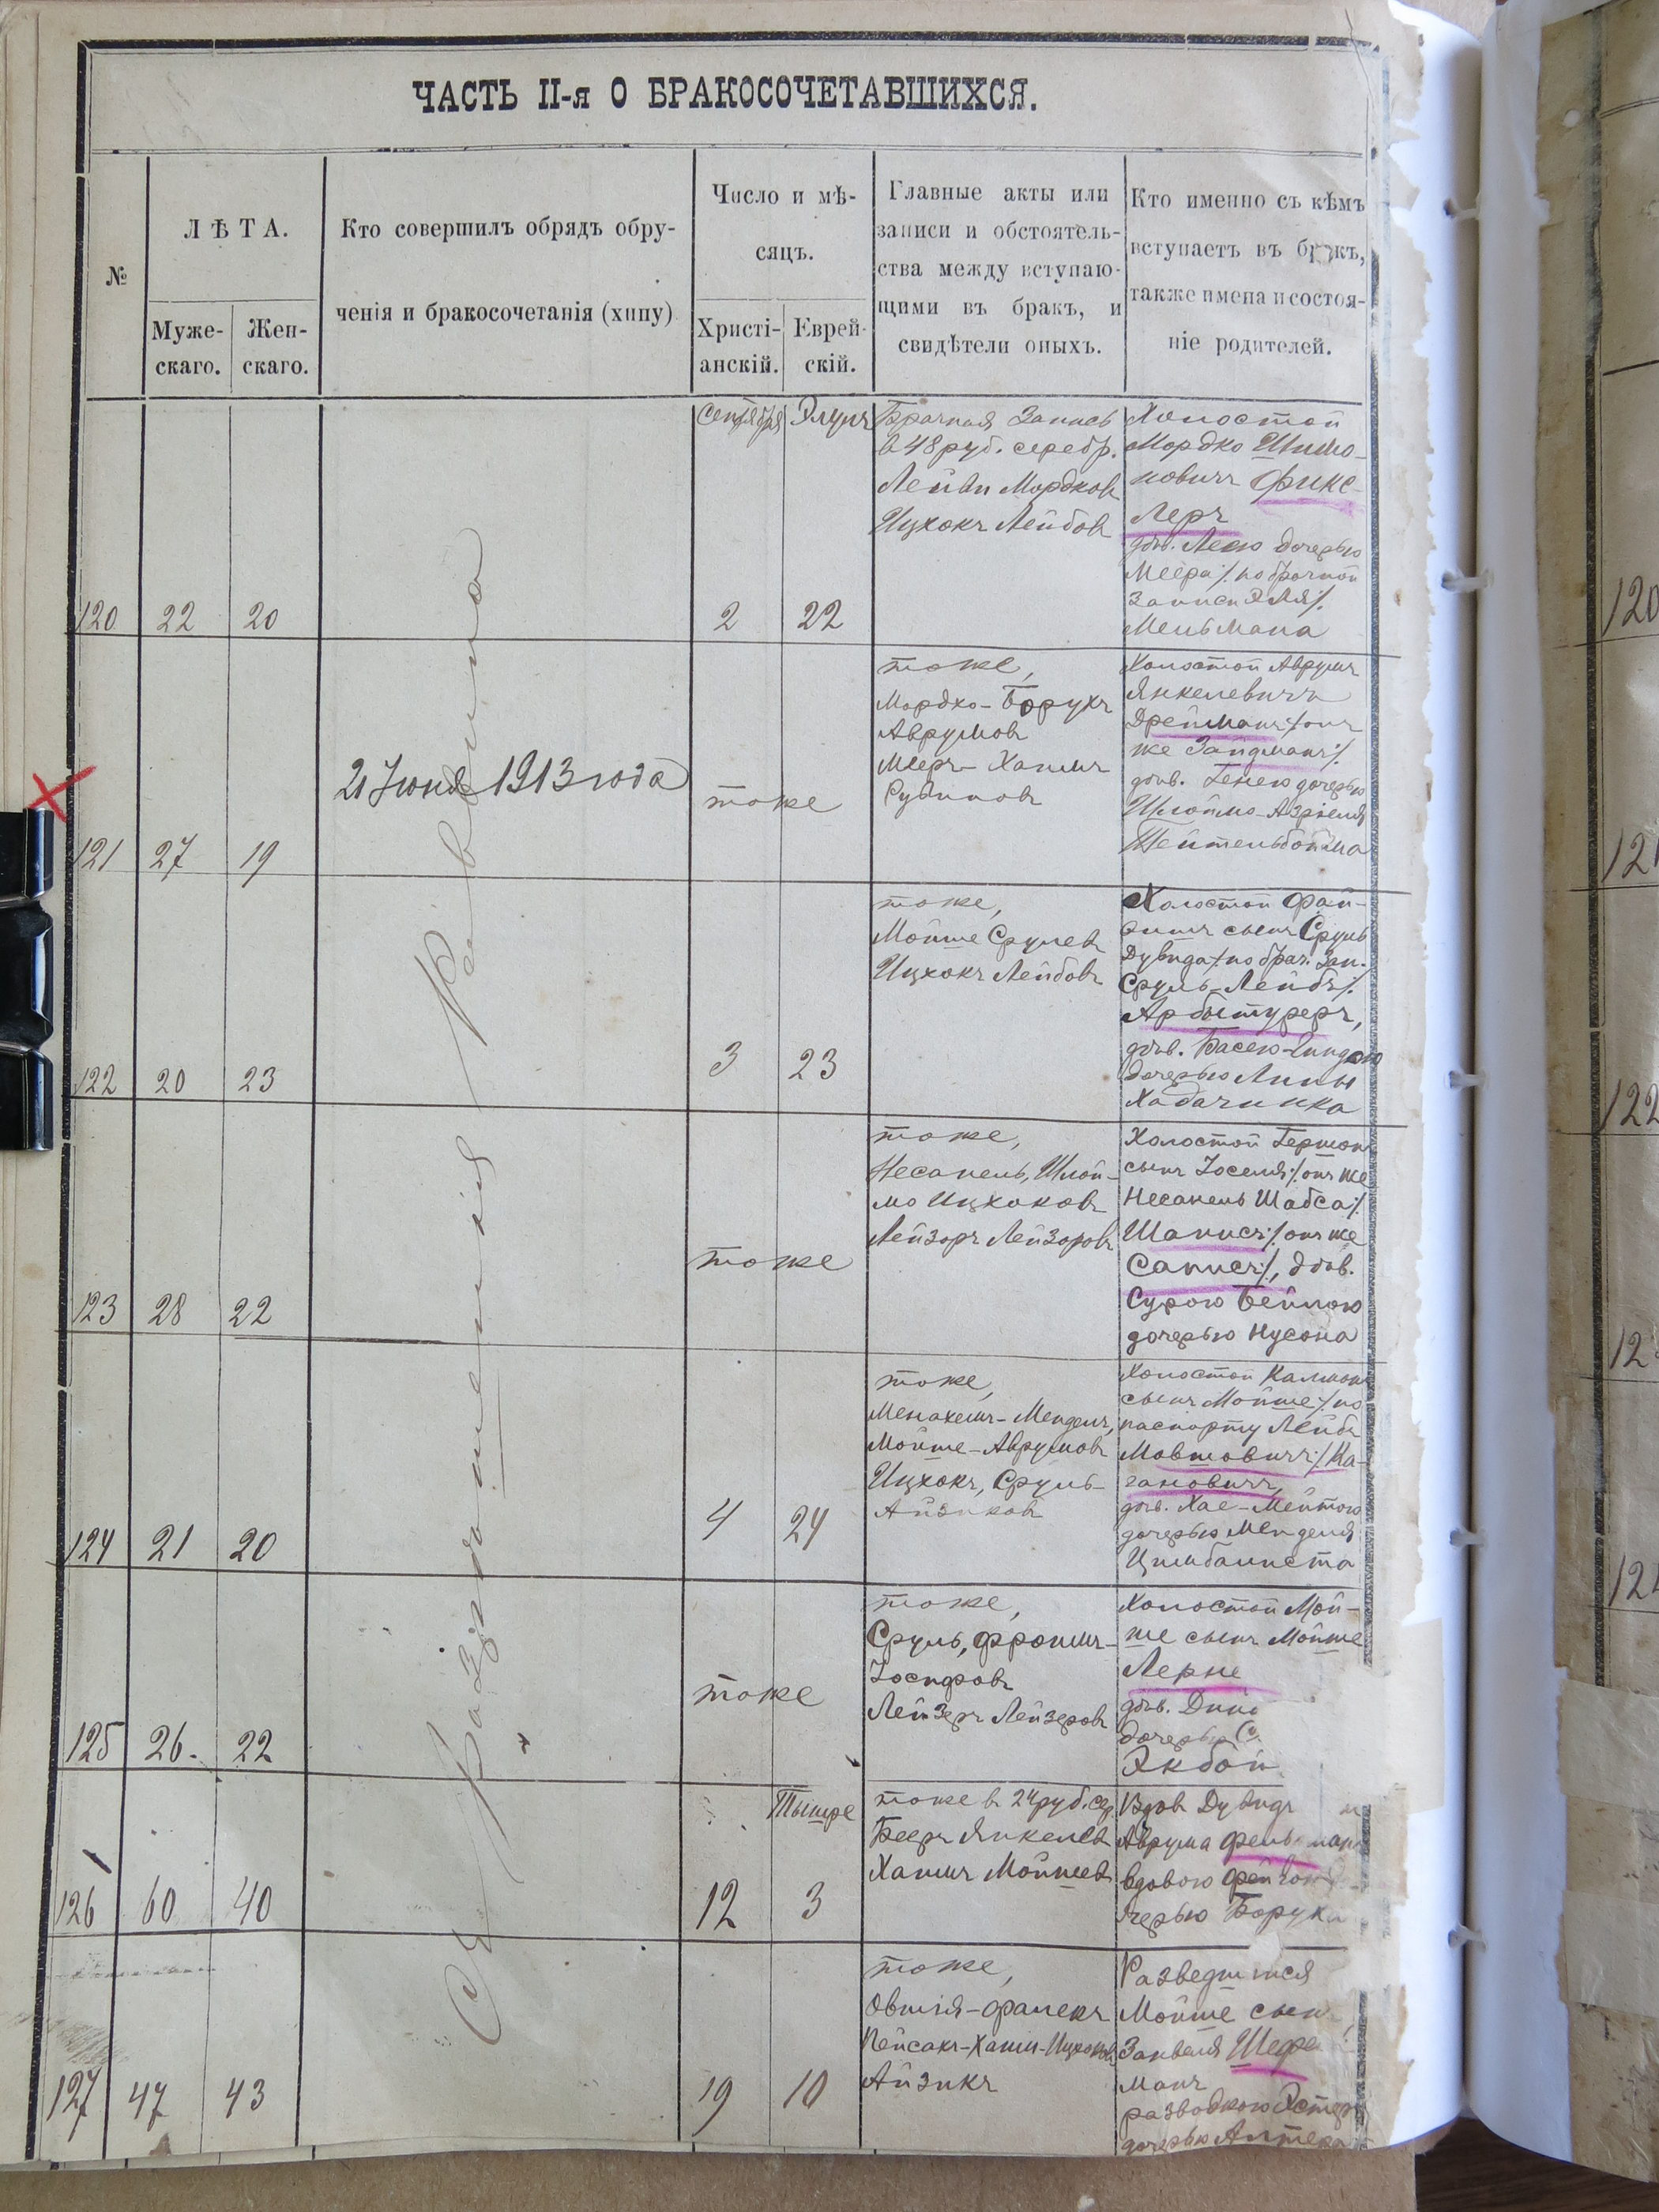 ЧАСТЬ II-я О БРАКОСОЧЕТАВШИХСЯ.
№
ЛѢТА.
Муже-
скаго.
Жен-
скаго.
Кто совершилъ обрядъ обру-
ченія и бракосочетанія (хипу)
Число и мѣ-
сяцъ.
Христі-
анскій.
Еврей-
скій.
Главные акты или
записи и обстоятель-
ства между вступаю-
щими въ бракъ, и
свидѣтели оныхъ.
Кто именно съ кѣмъ
вступаетъ въ бракъ,
также имена и состоя-
ніе родителей.
120
22
20
Сентября
Элулъ
2
22
Брачная Запись
в 48 руб. серебр.
Лейви Мордков
Ицхокъ Лейбов
Холостой
Мордко Шимо-
новичъ Фикс-
Леръ
дѣв. Леею дочерью
Меера /. по брачной
Записи /.
Мельмана
121
27
19
21 Іюня 1913 года
тоже
тоже,
Мордко-Борухъ
Аврумов
Мееръ-Хаимъ
Рувинов
Холостой Аврумъ
Янкелевичъ
Дрейманъ /. онъ
же Зайдманъ /.
дѣв. Генею дочерью
Шлоймо-Азріеля
Тейтельбойма
122
20
23
3
23
тоже,
Мойше Срулев
Ицхокъ Лейбовъ
Холостой Фай-
вишъ сынъ Сруль
Дувида /. по брач. Зап.
Сруль-Лейбъ /.
Арбытуреръ,
дѣв. Басею-Гиндою
дочерью Липы
Хабачника
123
28
22
тоже
тоже,
Несанель, Шлой-
мо Ицхоковъ
Лейзоръ Лейзоровъ
Холостой Гершонъ
сынъ Іоселя /. онъ же
Несанель Шабса /.
Шаписъ /. онъ же
Саписъ /., дѣв.
Сурою Бейлою
дочерью Нусона
124
21
20
4
24
тоже,
Менахемъ-Мендель,
Мойше-Аврумов
Ицхокъ, Сруль-
Айзиков
Холостой Калмонъ
сынъ Мойше /. по
паспорту Лейбъ
Мовшовичъ /. Ка-
гановичъ,
дѣв. Хае-Мейтою
дочерью Менделя
Цимбалиста
125
26.
22
тоже
тоже,
Сруль, Фроимъ-
Іосифовъ
Лейзеръ Лейзеровъ
Холостой Мой-
ше сынъ Мойше
Лерне
дѣв.
дочерью
Экбой
126
60
40
Тышре
12
3
тоже в 24 руб. сер.
Бееръ Янкелев
Хаимъ Мойшев
Вдов Дувидъ
Аврума
вдовою
черью Боруха
127
47
43
19
10
тоже,
Овшія-Фалекъ
Пейсахъ-Хаим-Ицхоков
Айзикъ
Разведшійся
Мойше сынъ
Занвеля Шефе
манъ
разводкою Эстер
дочерью Алтера
Съ разрѣшенія Раввина
120
121
122
12
12